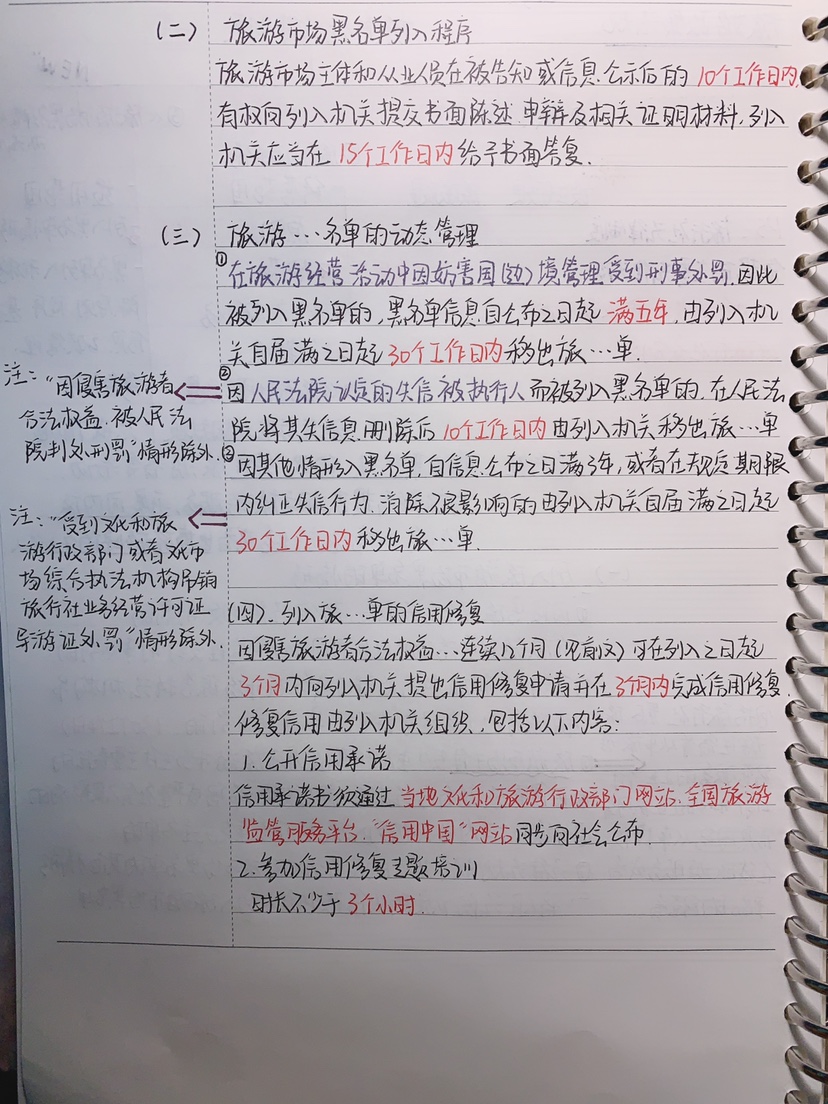 （二） 旅游市场黑名单列入程序
旅游市场主体和从业人员在被告知或信息公示后的 10个工作日内，
有权向列入机关提交书面陈述、申辩及相关证明材料，列入
机关应当在 15个工作日内给予书面答复.
（三） 旅游…名单的动态管理
① 在旅游经营活动中因妨害国（边）境管理受到刑事处罚，因此
被列入黑名单的，黑名单信息自公布之日起 满五年，由列入机
关自届满之日起 30个工作日内移出旅…单.
② 因人民法院认定的失信被执行人而被列入黑名单的，在人民法
院将其失信息删除后 10个工作日内由列入机关移出旅…单
③ 因其他情形入黑名单，自信息公布之日满3年，或者在规定期限
内纠正失信行为、消除不良影响的由列入机关自届满之日起
30个工作日内移出旅…单.
注：“因侵害旅游者
合法权益，被人民法
院判处刑罚”情形除外.
注：“受到文化和旅
游行政部门或者文化市
场综合执法机构吊销
旅行社业务经营许可证
导游证处罚”情形除外.
（四）、列入旅…单的信用修复
因侵害旅游者合法权益…连续12个月（见前文）可在列入之日起
3个月内向列入机关提出信用修复申请并在3个月内完成信用修复.
修复信用由列入机关组织，包括以下内容：
1.公开信用承诺
信用承诺书须通过 当地文化和旅游行政部门网站、全国旅游
监管服务平台、“信用中国”网站同步向社会公布.
2.参加信用修复专题培训
时长不少于 3个小时.